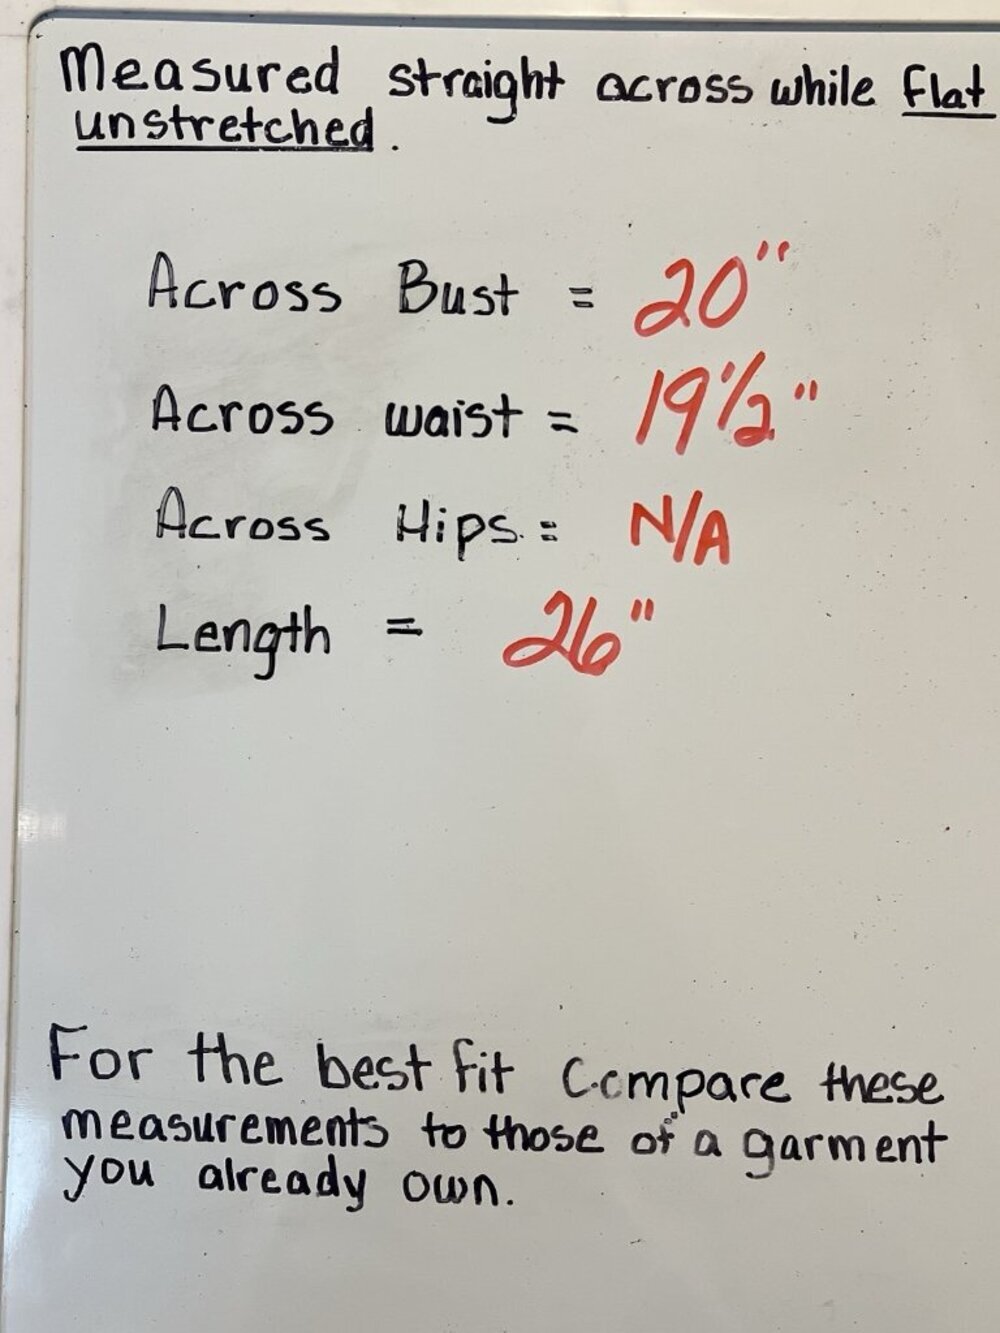 Measured straight across while flat
unstretched.
Across Bust = 20"
Across waist = 19 1/2"
Across Hips = N/A
Length = 26"
For the best fit Compare these
measurements to those of a garment
you already own.